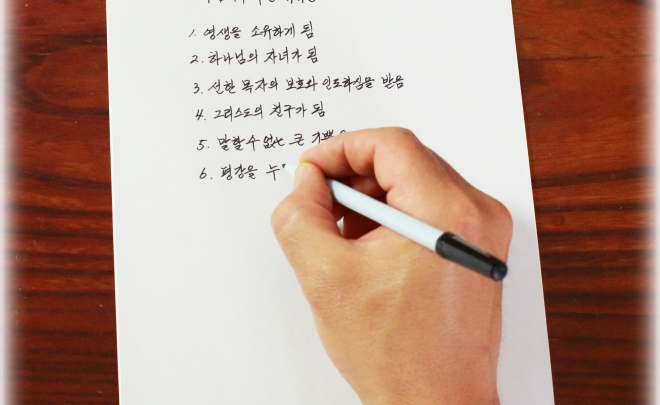 1. 영생을 소유하게 됨
2. 하나님의 자녀가 됨
3. 선한 목자의 보호와 인도하심을 받음
4. 그리스도의 친구가 됨
5. 말할 수 없는 큰
6. 평강을 누